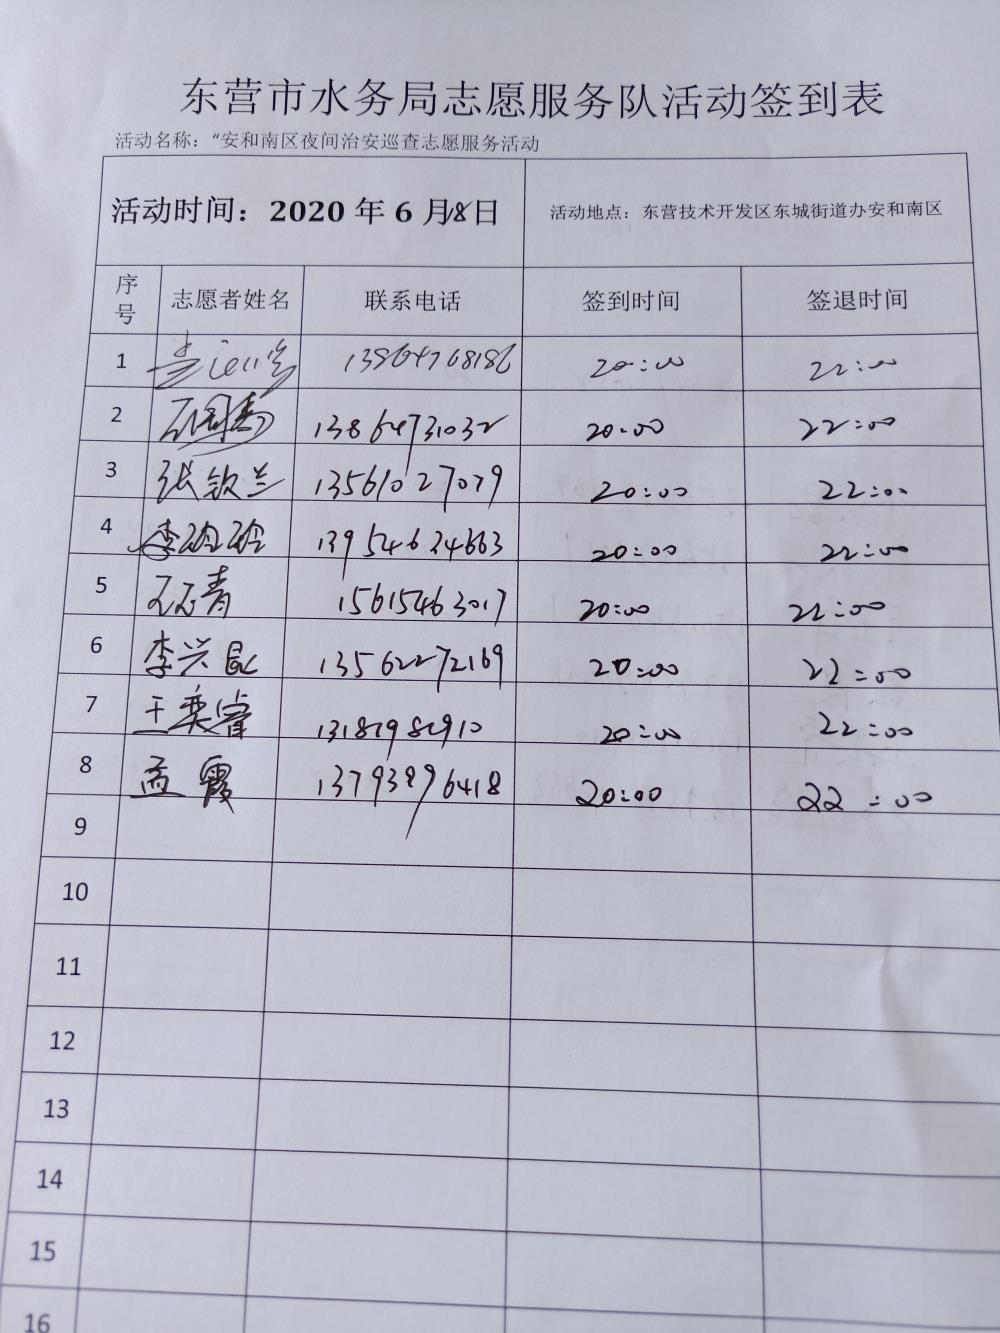 东营市水务局志愿服务队活动签到表
活动名称：“安和南区夜间治安巡查志愿服务活动
活动时间：2020 年 6 月18日 活动地点：东营技术开发区东城街道办安和南区
序号 志愿者姓名 联系电话 签到时间 签退时间
1 13864768186 20:00 22:00
2 13864731032 20:00 22:00
3 张钦兰 13561027079 20:00 22:00
4 李玲玲 13954624663 20:00 22:00
5 王玉青 15615463017 20:00 22:00
6 李兴昆 13562272169 20:00 22:00
7 王奕睿 13181981910 20:00 22:00
8 孟霞 13793896418 20:00 22:00
9
10
11
12
13
14
15
16